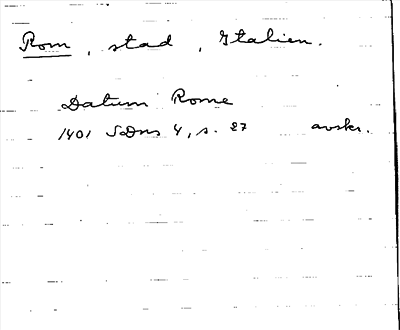 Rom, stad, Italien.
Datum Rome
1401 SDns 4, s. 27 avskr.